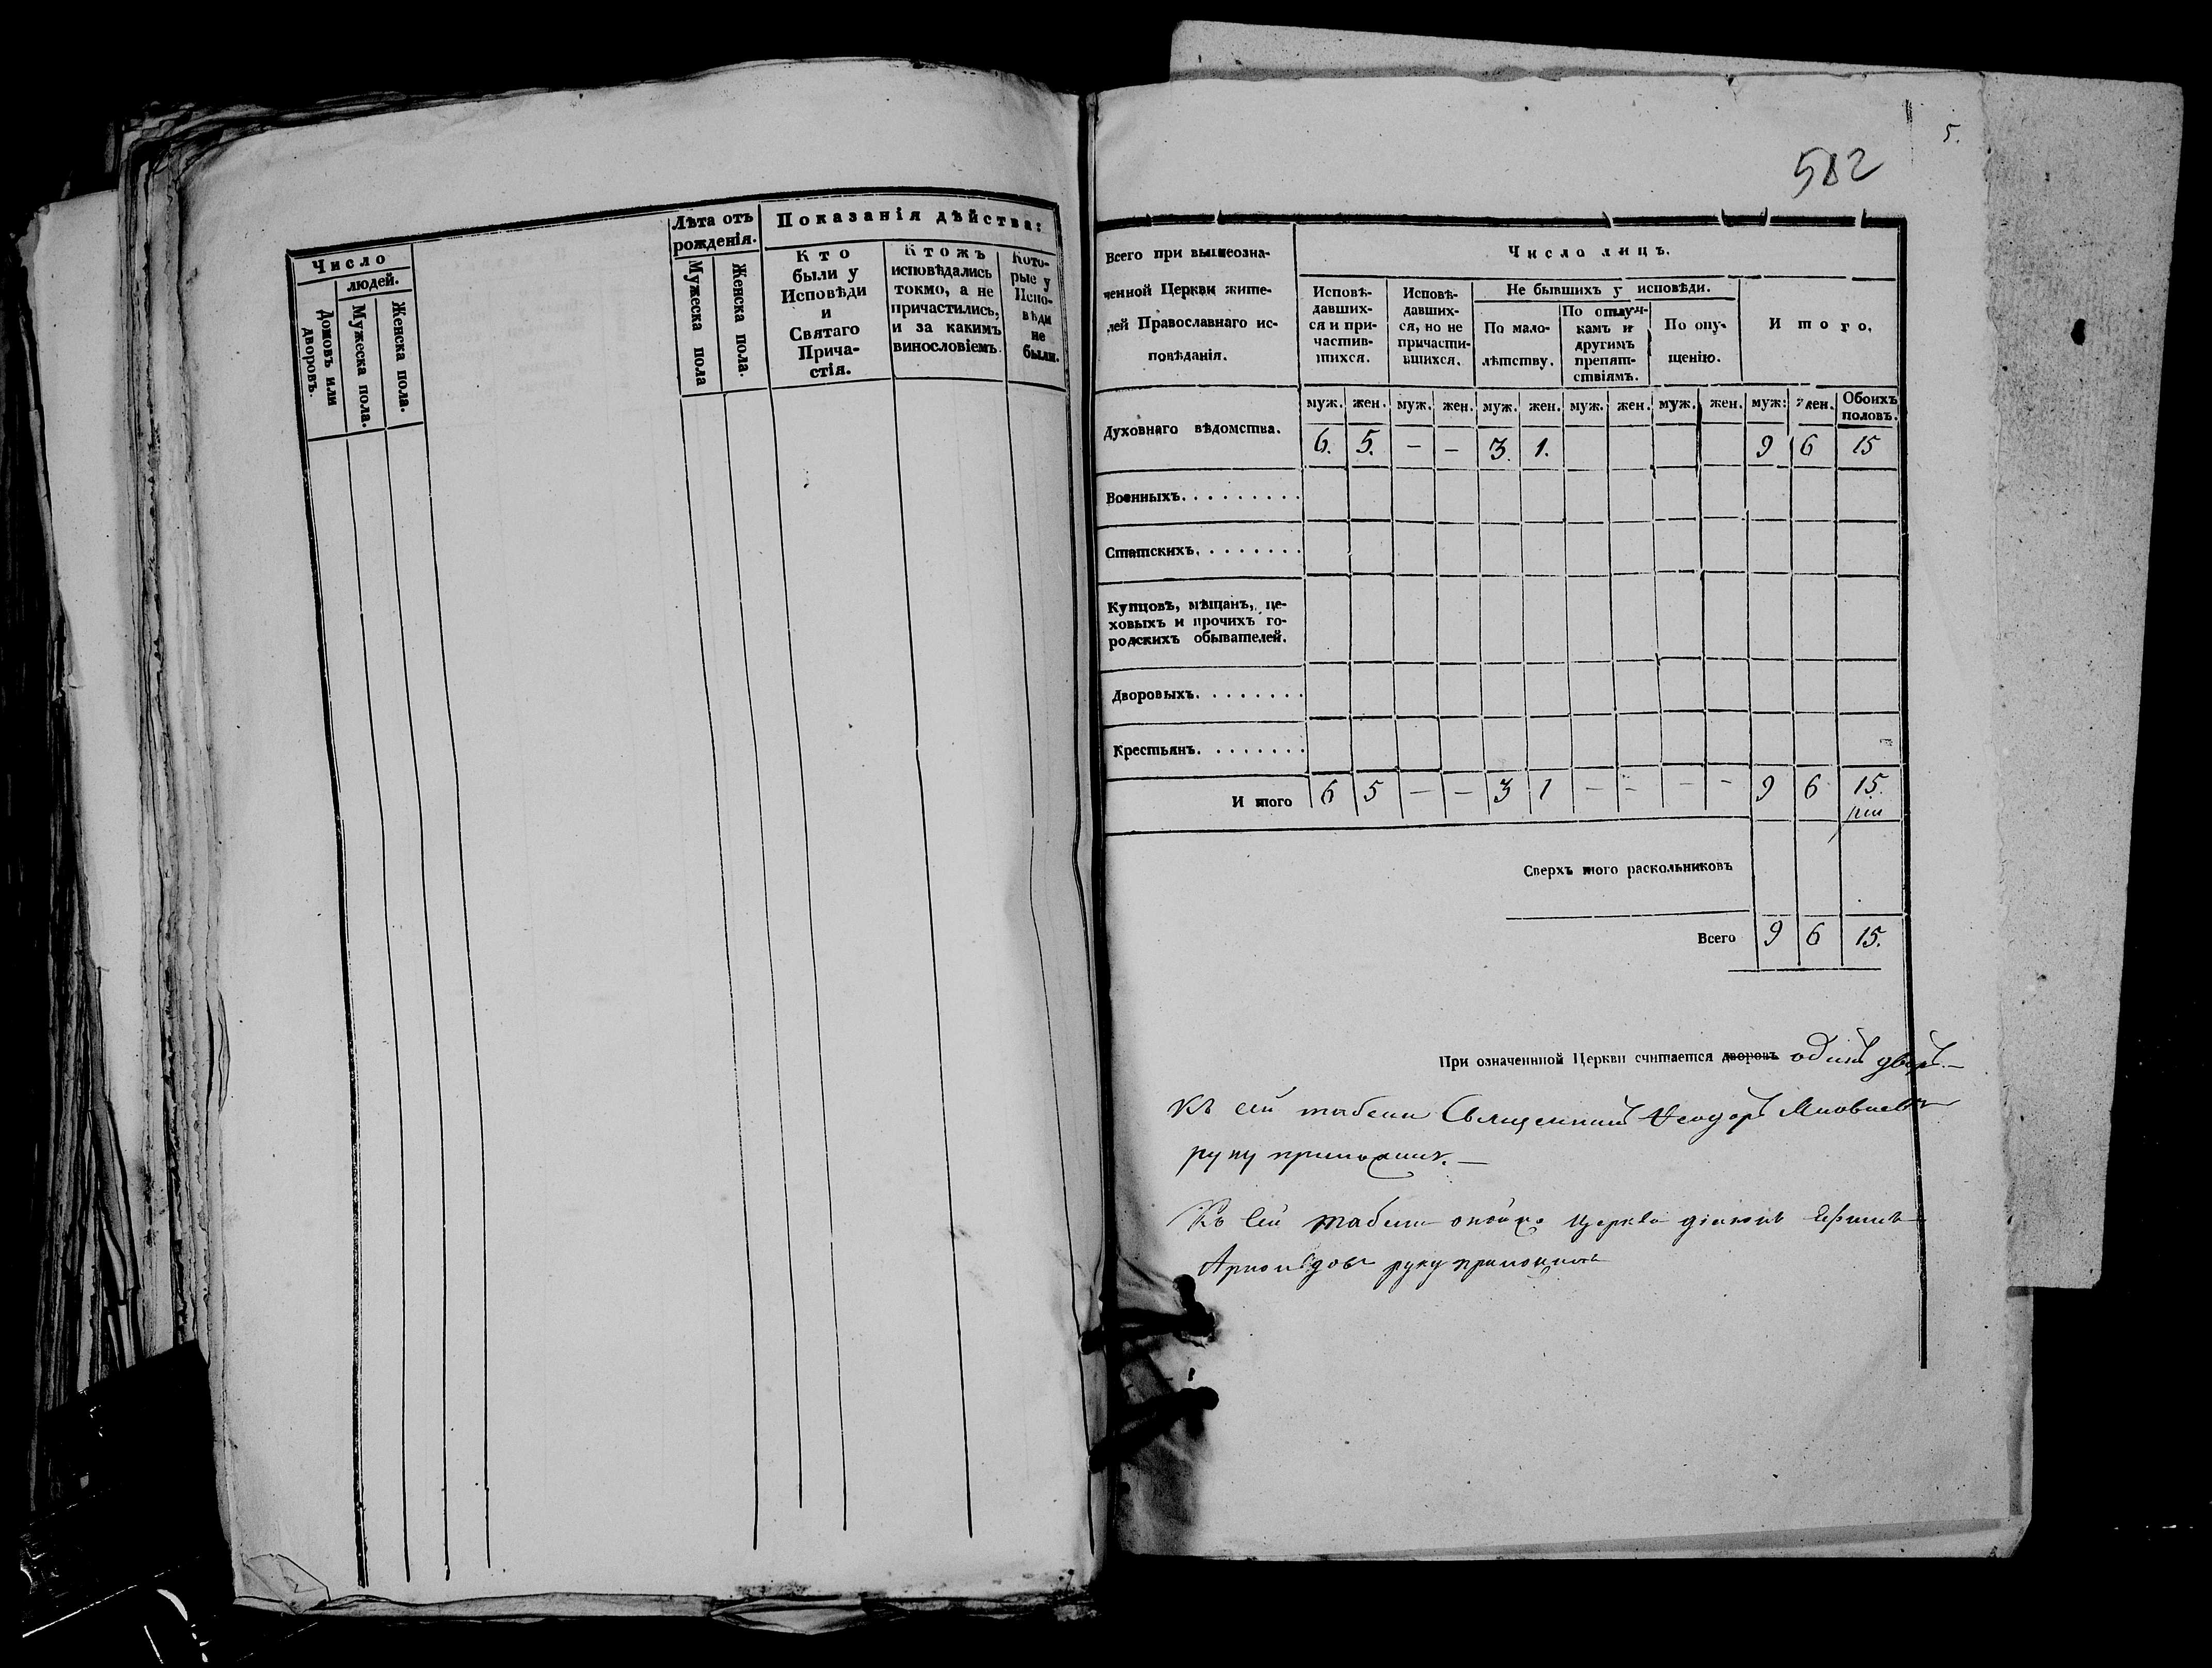 Число
людей.
Домовъ или дворовъ.
Мужеска пола.
Женска пола.
Лѣта отъ
рожденія.
Мужеска пола
Женска пола.
Показанія дѣйства:
Кто
были у
Исповѣди
и
Святаго
Прича-
стія.
Ктожъ
исповѣдались
токмо, а не
причастились,
и за какимъ
винословіемъ.
Кото-
рые у
Испо-
вѣди
не
были.
5.
582
Всего при вышеозна-
ченной Церкви жите-
лей Православнаго ис-
повѣданія.
Число лицъ.
Исповѣ-
давших-
ся и при-
частив-
шихся.
Исповѣ-
давших-
ся, но не
причасти-
вшихся.
Не бывшихъ у исповѣди.
По мало-
лѣтству.
По отлуч-
камъ и
другимъ
препят-
ствіямъ.
По опу-
щенію.
Итого.
муж. жен. муж. жен. муж. жен. муж. жен. муж. жен. муж: жен. Обоихъ половъ.
Духовнаго вѣдомства. 6. 5. – – 3. 1. 9 6 15
Военныхъ.........
Статскихъ........
Купцовъ, мѣщанъ, це-
ховыхъ и прочихъ го-
родскихъ обывателей.
Дворовыхъ........
Крестьянъ........
И того 6 5 – – 3 1 – – – – 9 6 15.
Сверхъ того раскольниковъ
Всего 9 6 15.
При означенной Церкви считается дворовъ одинъ дворъ.–
Къ сей табели Священникъ Ѳеодоръ
руку приложилъ.–
Къ сей табели оной же церкви діаконъ Ефимъ
руку приложилъ